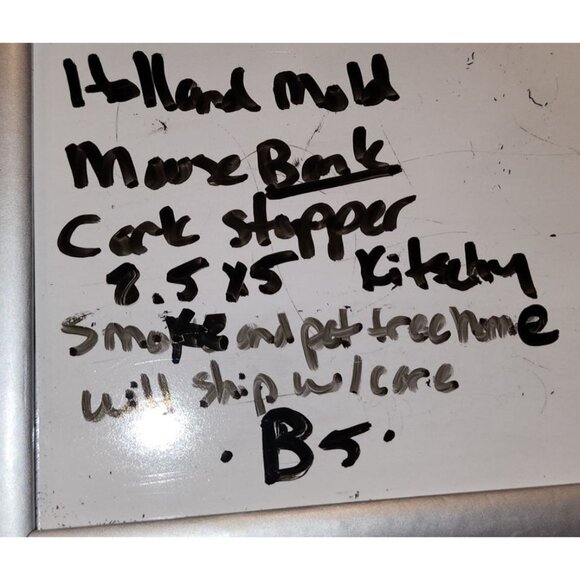 Holland Mold
Mouse Bank
Cork stopper
8.5 x 5 Kitschy
Smoke and pet free home
will ship w/ care
. B5 .